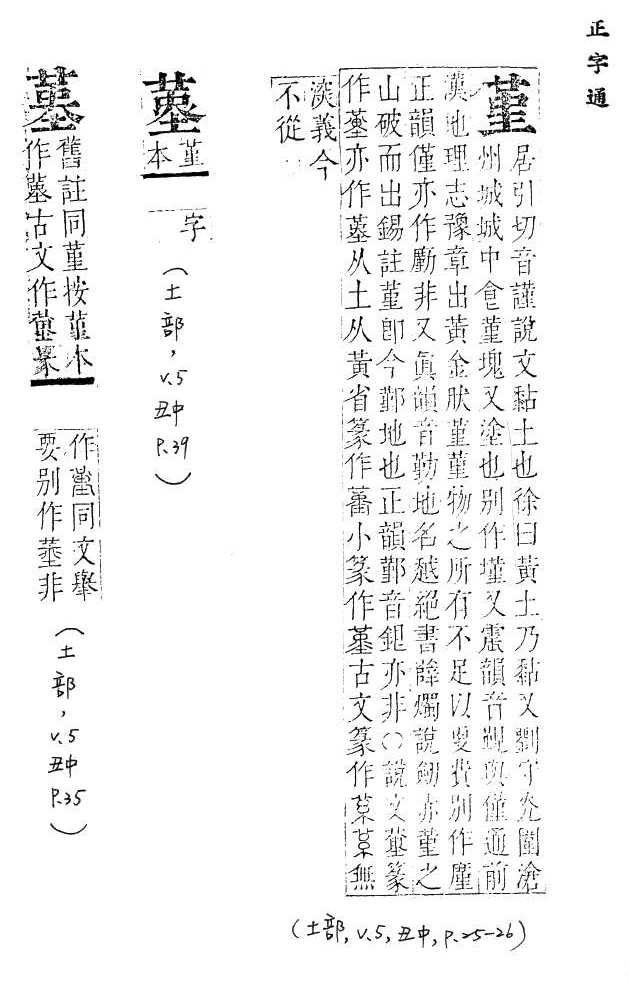 正字通
堇
居引切音謹說文黏土也徐曰黃土乃黏又劉守光圍滄
州城城中食堇塊又塗也別作墐又震韻音覲與僅通前
漢地理志豫章出黃金肰堇堇物之所有不足以更費別作廑
正韻僅亦作廑非又真韻音勤地名越絕書薛燭說劒赤堇之
山破而出錫註堇卽今鄞地也正韻鄞音銀亦非〇說文篆
作亦作从土从黃省篆作小篆作古文篆作無
淡義今
不從
(土部, v.5, 丑中, p.25-26)
堇
本
字
(土部, v.5 丑中 p.39)
舊註同堇按堇本
作古文作篆
作同文舉
要別作非
(土部, v.5 丑中 p.35)